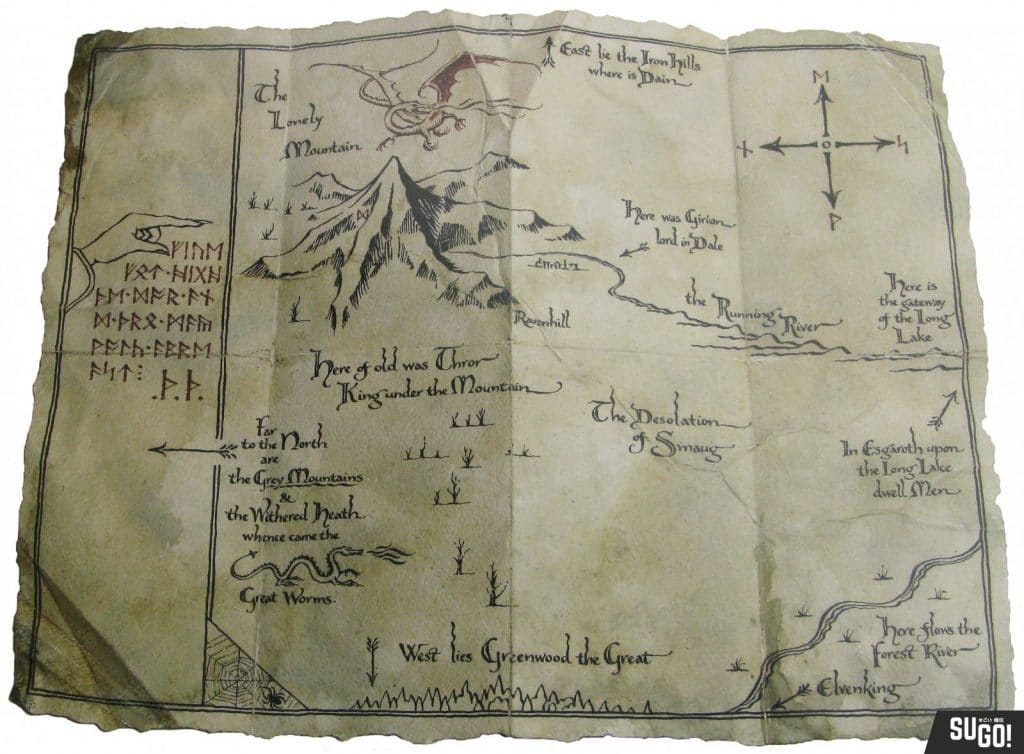 East lie the Iron Hills
where is Dain
The
Lonely
Mountain
ᛖ
ᚾ
ᛋ
ᚹ
ᛞ
Here was Girion
lord in Dale
ᚠᛁᚢᛖ
Ravenhill
the Running River
Here is
the gateway
of the Long
Lake
Here of old was Thror
King under the Mountain
.ᚦ.ᚦ.
The Desolation
of Smaug
Far
to the North
are
the Grey Mountains
&
the Withered Heath
whence came the
Great Worms.
In Esgaroth upon
the Long Lake
dwell Men
Here flows the
Forest River
West lies Greenwood the Great
Elvenking
SUGO!